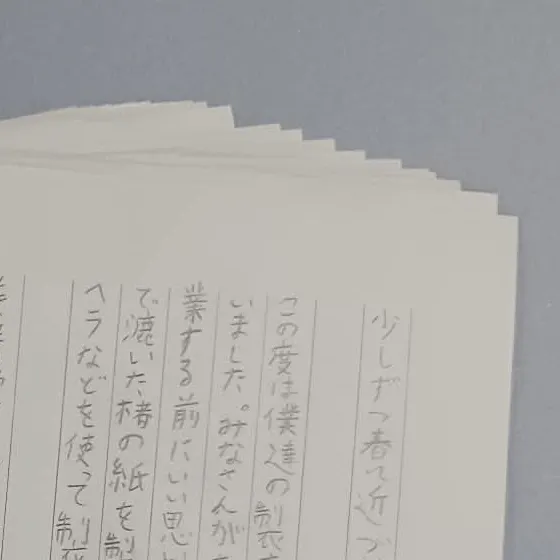 少しずつ春て近づ
この度は僕達の製
いました。みなさんが
業する前にいい思い
で漉いた楮の紙を
ヘラなどを使って製